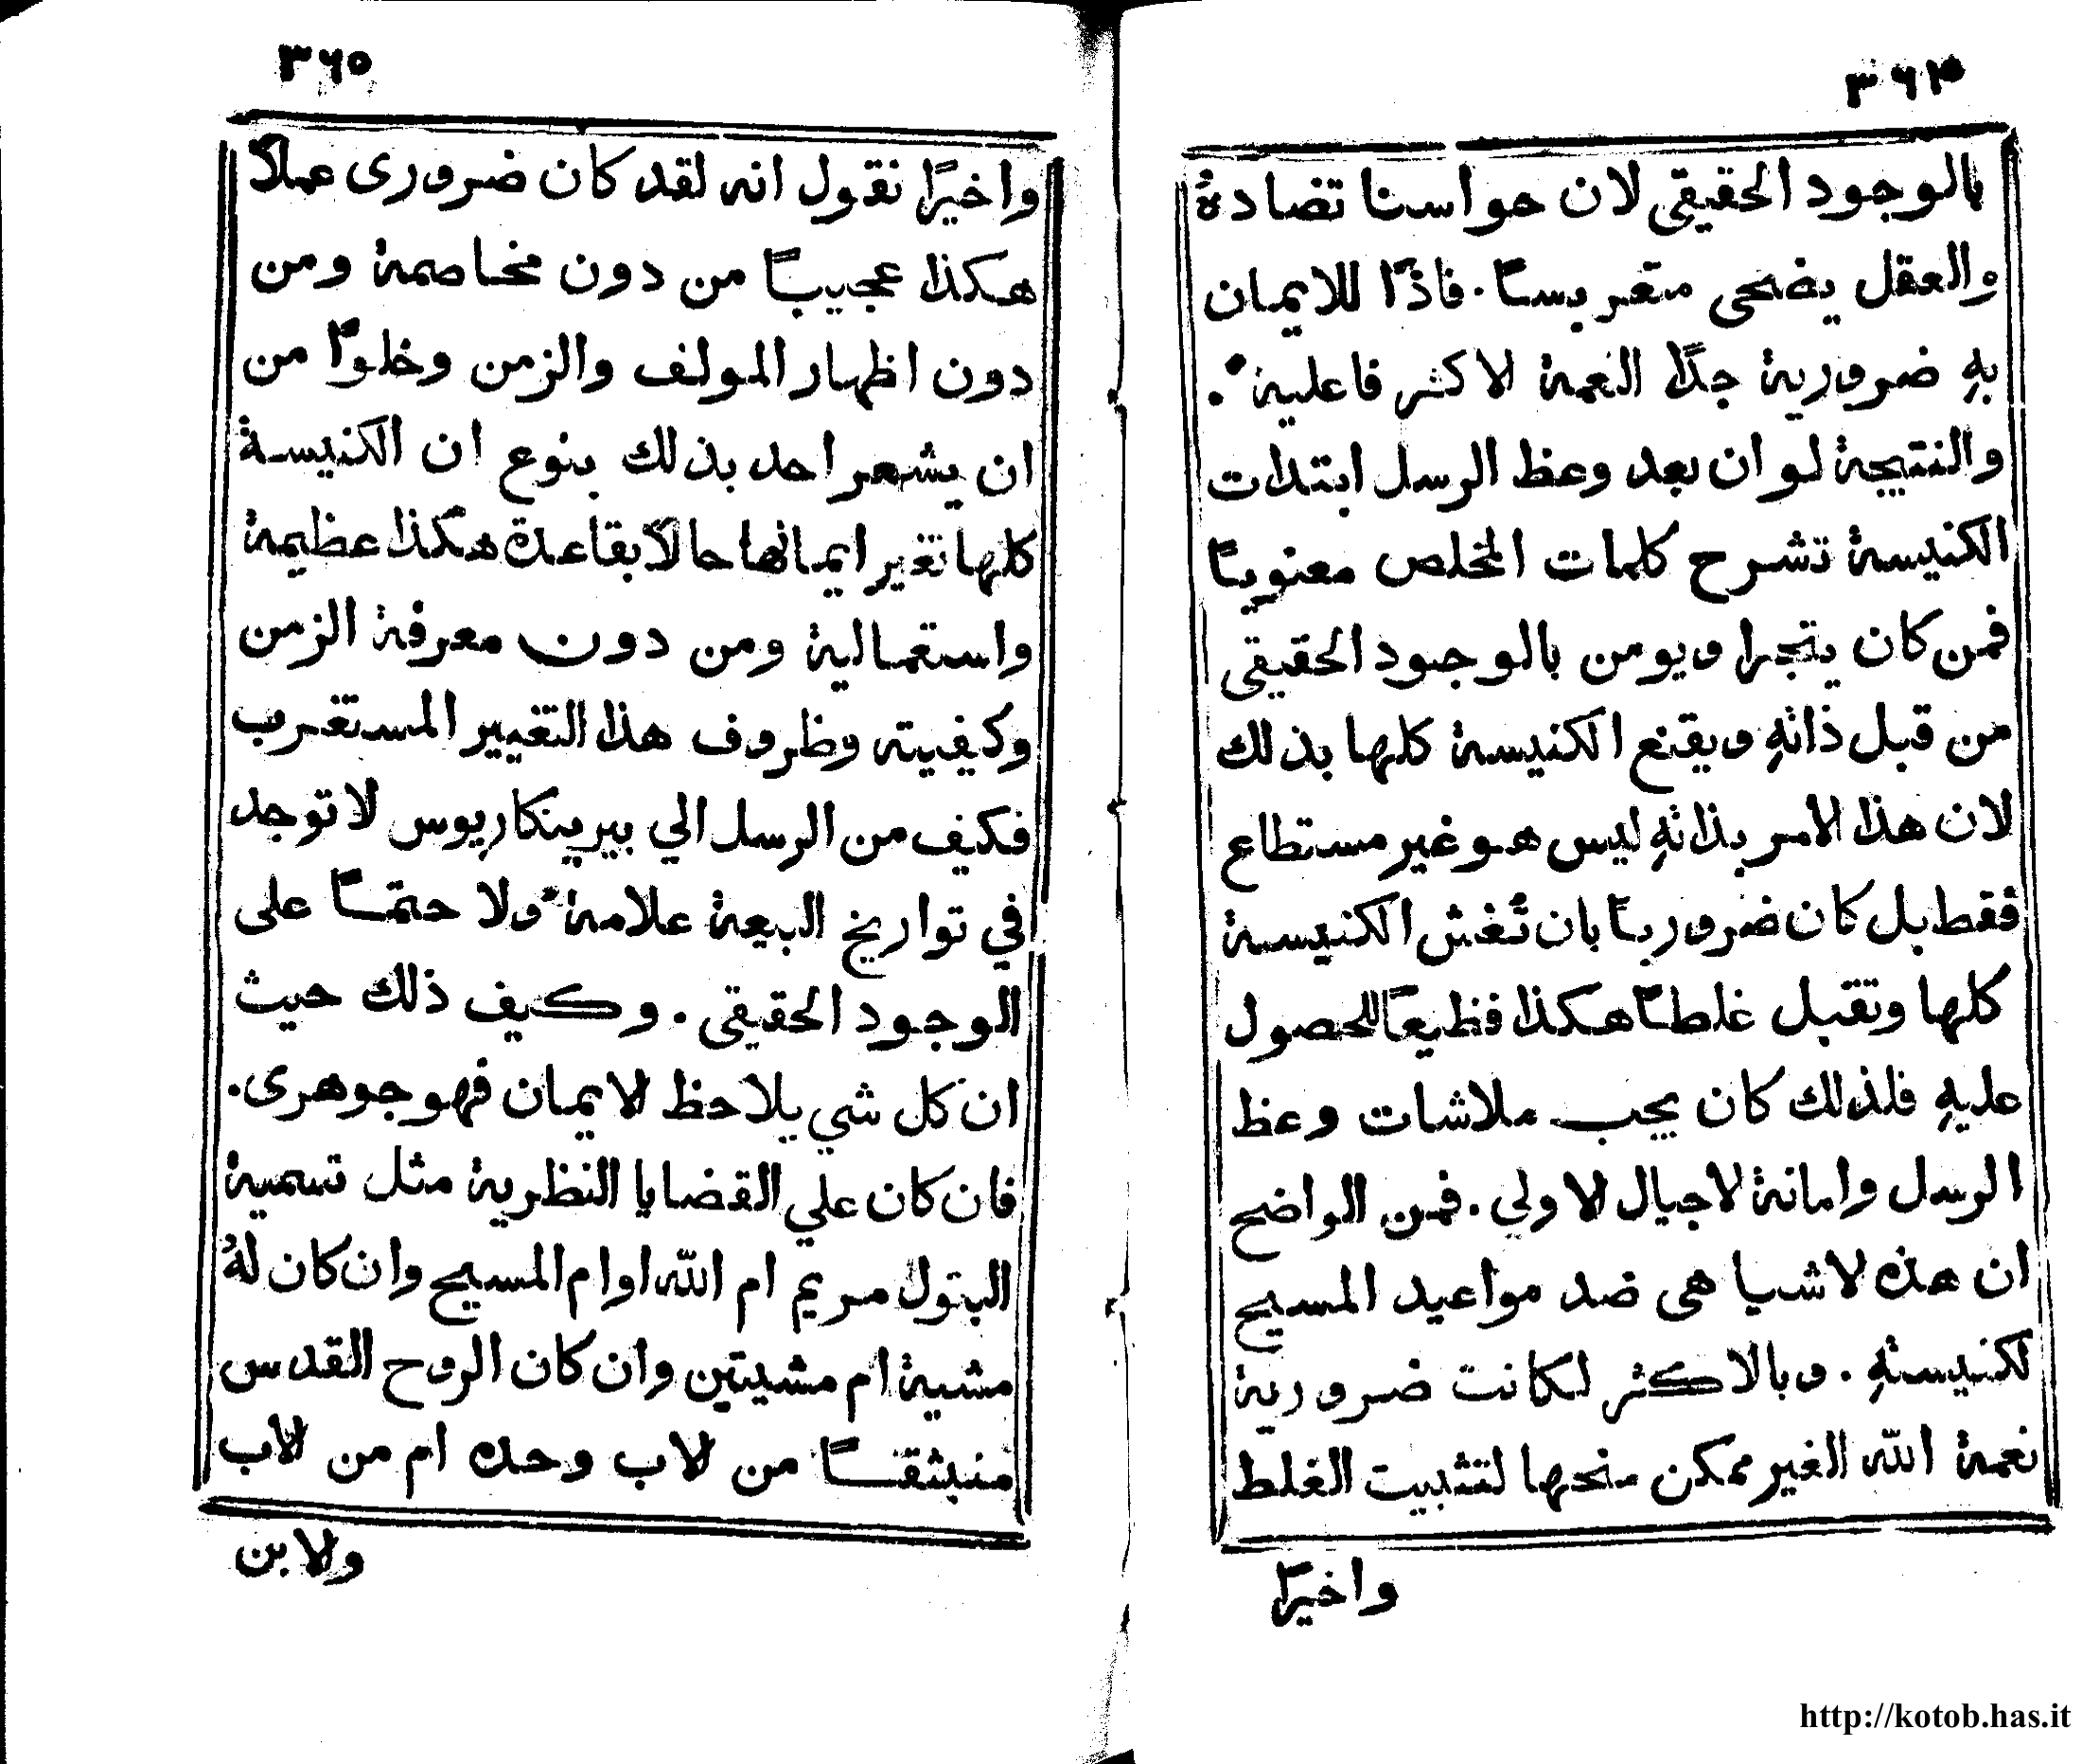 ٣٦٤
بالوجود الحقيقي لان حواسنا تضاده
والعقل يضحى متعربسًا. فاذًا للايمان
بهِ ضرورية جدًا النعمة الاكثر فاعلية.
والنتيجة لو ان بعد وعظ الرسل ابتدات
الكنيسة تشرح كلمات المخلص معنويًا
فمن كان يتجرا ويومن بالوجود الحقيقي
من قبل ذاتهِ ويقنع الكنيسة كلها بذلك
لان هذا الامر بذاتهِ ليس هو غير مستطاع
فقط بل كان ضروريًا بان تُغش الكنيسة
كلها وتقبل غلطًا هكذا فظيعًا للحصول
عليهِ فلذلك كان يجب ملاشات وعظ
الرسل وامانة لاجيال الاولي. فمن الواضح
ان هذه لاشيا هى ضد مواعيد المسيح
لكنيستهِ. وبالاكثر لكانت ضرورية
نعمة الله الغير ممكن منحها لتثبيت الغلط
واخيرًا
٣٦٥
واخيرًا نقول انه لقد كان ضرورى عملاً
هكذا عجيبًا من دون مخاصمة ومن
دون اظهار المولف والزمن وخلوًا من
ان يشعر احد بذلك بنوع ان الكنيسة
كلها تغير ايمانها حالاً بقاعدة هكذا عظيمة
واستعمالية ومن دون معرفة الزمن
وكيفيته وظروف هذا التغيير المستغرب
فكيف من الرسل الي بيرينكاريوس لا توجد
في تواريخ البيعة علامة ولا حتمًا على
الوجود الحقيقي. وكيف ذلك حيث
ان كل شي يلاحظ الايمان فهو جوهرى.
فان كان علي القضايا النظرية مثل تسمية
البتول مريم ام الله او ام المسيح وان كان لهُ
مشية ام مشيتين وان كان الروح القدس
منبثقًا من لاب وحده ام من لاب
ولابن
http://kotob.has.it